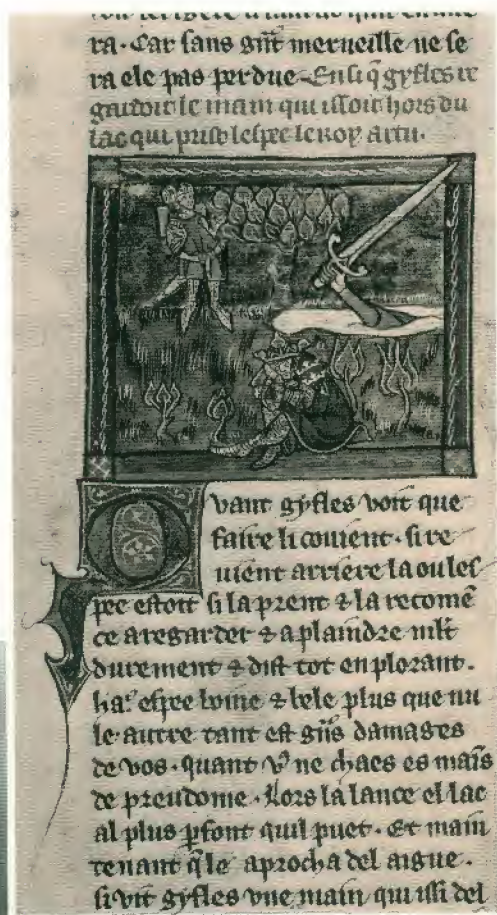 ra · Car sans gñt merueille ne se
ra ele pas perdue · Ensi q̃ gyfles re
gardoit le main qui issoit hors du
lac qui prist lespee le roy artu ·
Quant gyfles voit que
faire li couient · si re
uient arriere la ou les
pee estoit si la prent ⁊ la recomē
ce a regarder ⁊ a plaindre mlt
durement ⁊ dist tot en plorant .
ha · espee boine ⁊ bele plus que nu
le autre tant est gñs damages
de vos · quant vꝰ ne chaes es maīs
de preudome · Lors la lance el lac
al plus ꝑfont quil puet · Et main
tenant q̃le aprocha del aigue ·
si vit gyfles vne main qui issi del